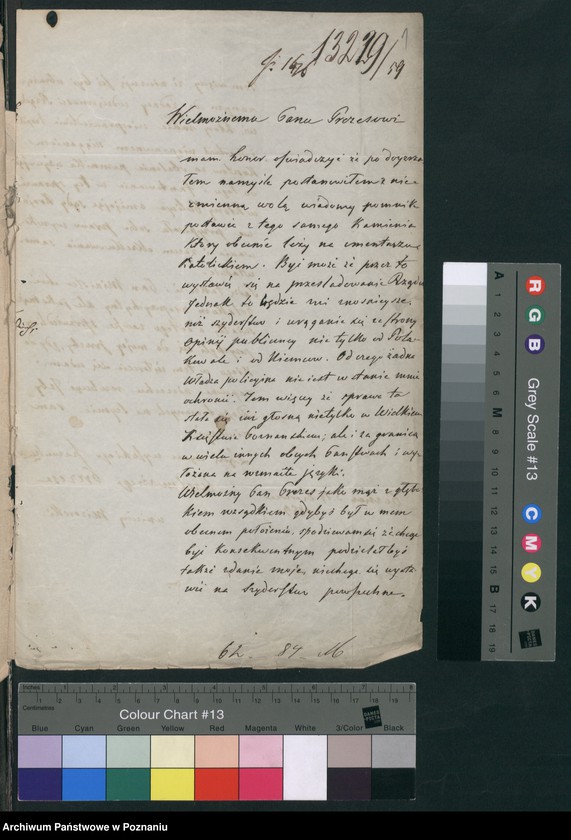 13229/59
Wielmożnemu Panu Prezesowi
mam honor oświadczyć że po dojrza-
łem namyśle postanowiłem z nie-
zmienną wolą wiadomy pomnik
postawić z tego samego Kamienia
który obecnie leży na cmentarzu
Katolickiem. Być może że przez to
wystawię się na prześladowanie Rządu
jednak to będzie mi znośniejsze,
niż szyderstwa i urąganie się ze strony
opinij publicznej nie tylko od Pola-
ków ale i od Niemców. Od czego żadna
władza policyjna nie jest w stanie mnie
ochronić. Tem więcej że sprawa ta
stała się już głośną nietylko w Wielkiem
Księstwie Poznańskim, ale i za granicą
w wielu innych obcych Państwach i wy-
łożona na rozmaite języki.
Wielmożny Pan Prezes jako mąż z głębo-
kiem rozsądkiem, gdybyś był w mem
obecnem położeniu, spodziewam się że chcąc
być konsekwentnym podzielałbyś
także zdanie moje, niechcąc się wysta-
wić na szyderstwa powszechne.
62. 84 M
Inches
Centimetres
Colour Chart #13
Blue Cyan Green Yellow Red Magenta White 3/Color Black
Grey Scale #13
R G B
C M Y K
A 1 2 3 4 5 6 M 8 9 10 11 12 13 14 15 B 17 18 19
DANES-PICTA
Archiwum Państwowe w Poznaniu